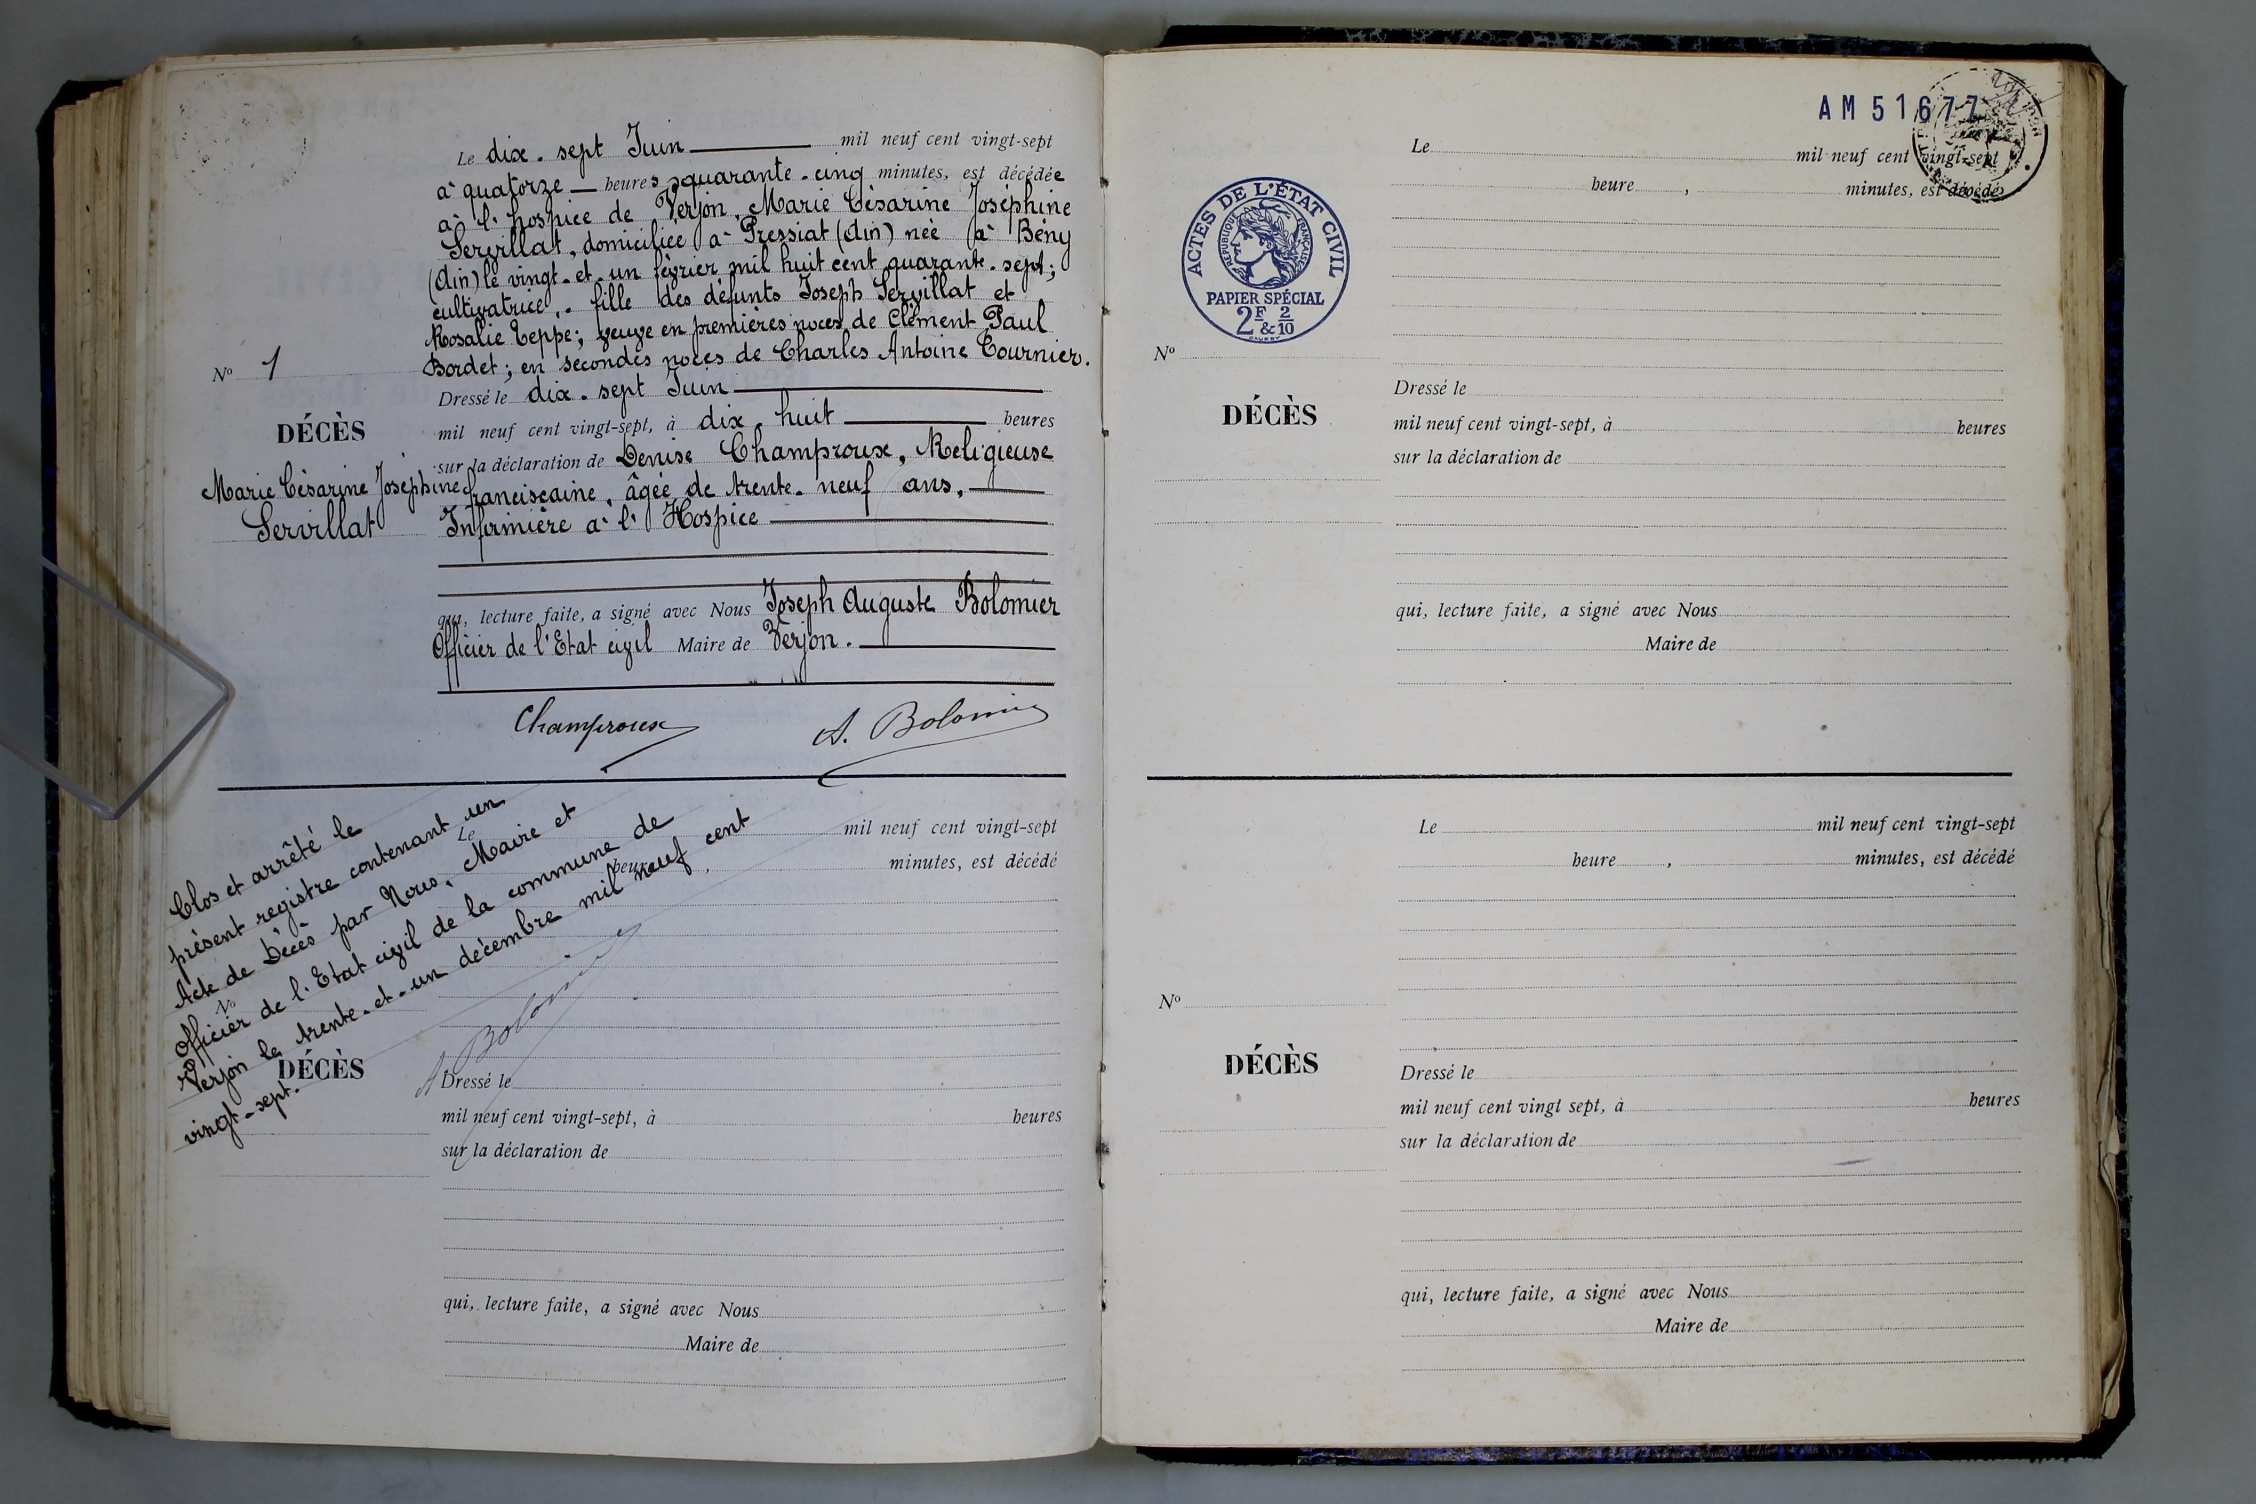 Le dix. sept Juin mil neuf cent vingt-sept
à quatorze heures quarante. cinq minutes, est décédée
à l'hospice de Verjon, Marie Césarine Joséphine
Servillat, domiciliée à Pressiat (Ain) née à Bény
(Ain) le vingt. et. un février mil huit cent quarante. sept;
cultivatrice, fille des défunts Joseph Servillat et
Rosalie Teppe; veuve en premières noces de Clément Paul
Bordet; en secondes noces de Charles Antoine Tournier.
Nº 1
DÉCÈS
Marie Césarine Joséphine
Servillat
Dressé le dix. sept Juin
mil neuf cent vingt-sept, à dix. huit heures
sur la déclaration de Denise Champroux, Religieuse
franciscaine, âgée de trente. neuf ans,
Infirmière à l'Hospice
qui, lecture faite, a signé avec Nous Joseph Auguste Bolomier
Officier de l'Etat civil Maire de Verjon.
Champroux
A. Bolomier
Clos et arrêté le
présent registre contenant un
Acte de Décès par Nous, Maire et
Officier de l'Etat civil de la commune de
Verjon le trente. et. un décembre mil neuf cent
vingt. sept.
A Bolomier
Le mil neuf cent vingt-sept
heure , minutes, est décédé
Nº
DÉCÈS
Dressé le
mil neuf cent vingt-sept, à heures
sur la déclaration de
qui, lecture faite, a signé avec Nous
Maire de
AM 51677
ACTES DE L'ÉTAT CIVIL
RÉPUBLIQUE FRANÇAISE
PAPIER SPÉCIAL
2F & 2/10
Le mil neuf cent vingt-sept
heure , minutes, est décédé
Nº
DÉCÈS
Dressé le
mil neuf cent vingt-sept, à heures
sur la déclaration de
qui, lecture faite, a signé avec Nous
Maire de
Le mil neuf cent vingt-sept
heure , minutes, est décédé
Nº
DÉCÈS
Dressé le
mil neuf cent vingt sept, à heures
sur la déclaration de
qui, lecture faite, a signé avec Nous
Maire de